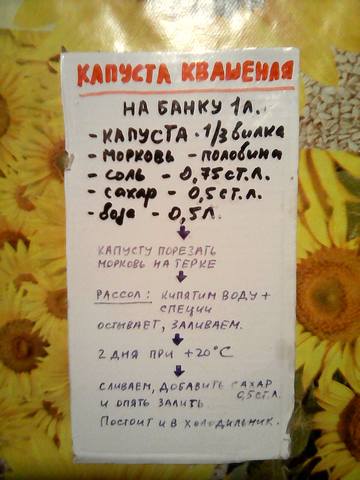 КАПУСТА КВАШЕНАЯ
НА БАНКУ 1Л.
- КАПУСТА - 1/3 вилка
- МОРКОВЬ - половина
- соль - 0,75 ст. л.
- сахар - 0,5 ст. л.
- вода - 0,5 л.
КАПУСТУ ПОРЕЗАТЬ
МОРКОВЬ НА ТЕРКЕ
РАССОЛ: КИПЯТИМ ВОДУ +
СПЕЦИИ
ОСТЫВАЕТ, ЗАЛИВАЕМ.
2 ДНЯ ПРИ +20°С
СЛИВАЕМ, ДОБАВИТЬ САХАР
0,5 СТ.Л.
И ОПЯТЬ ЗАЛИТЬ
ПОСТОИТ И В ХОЛОДИЛЬНИК.